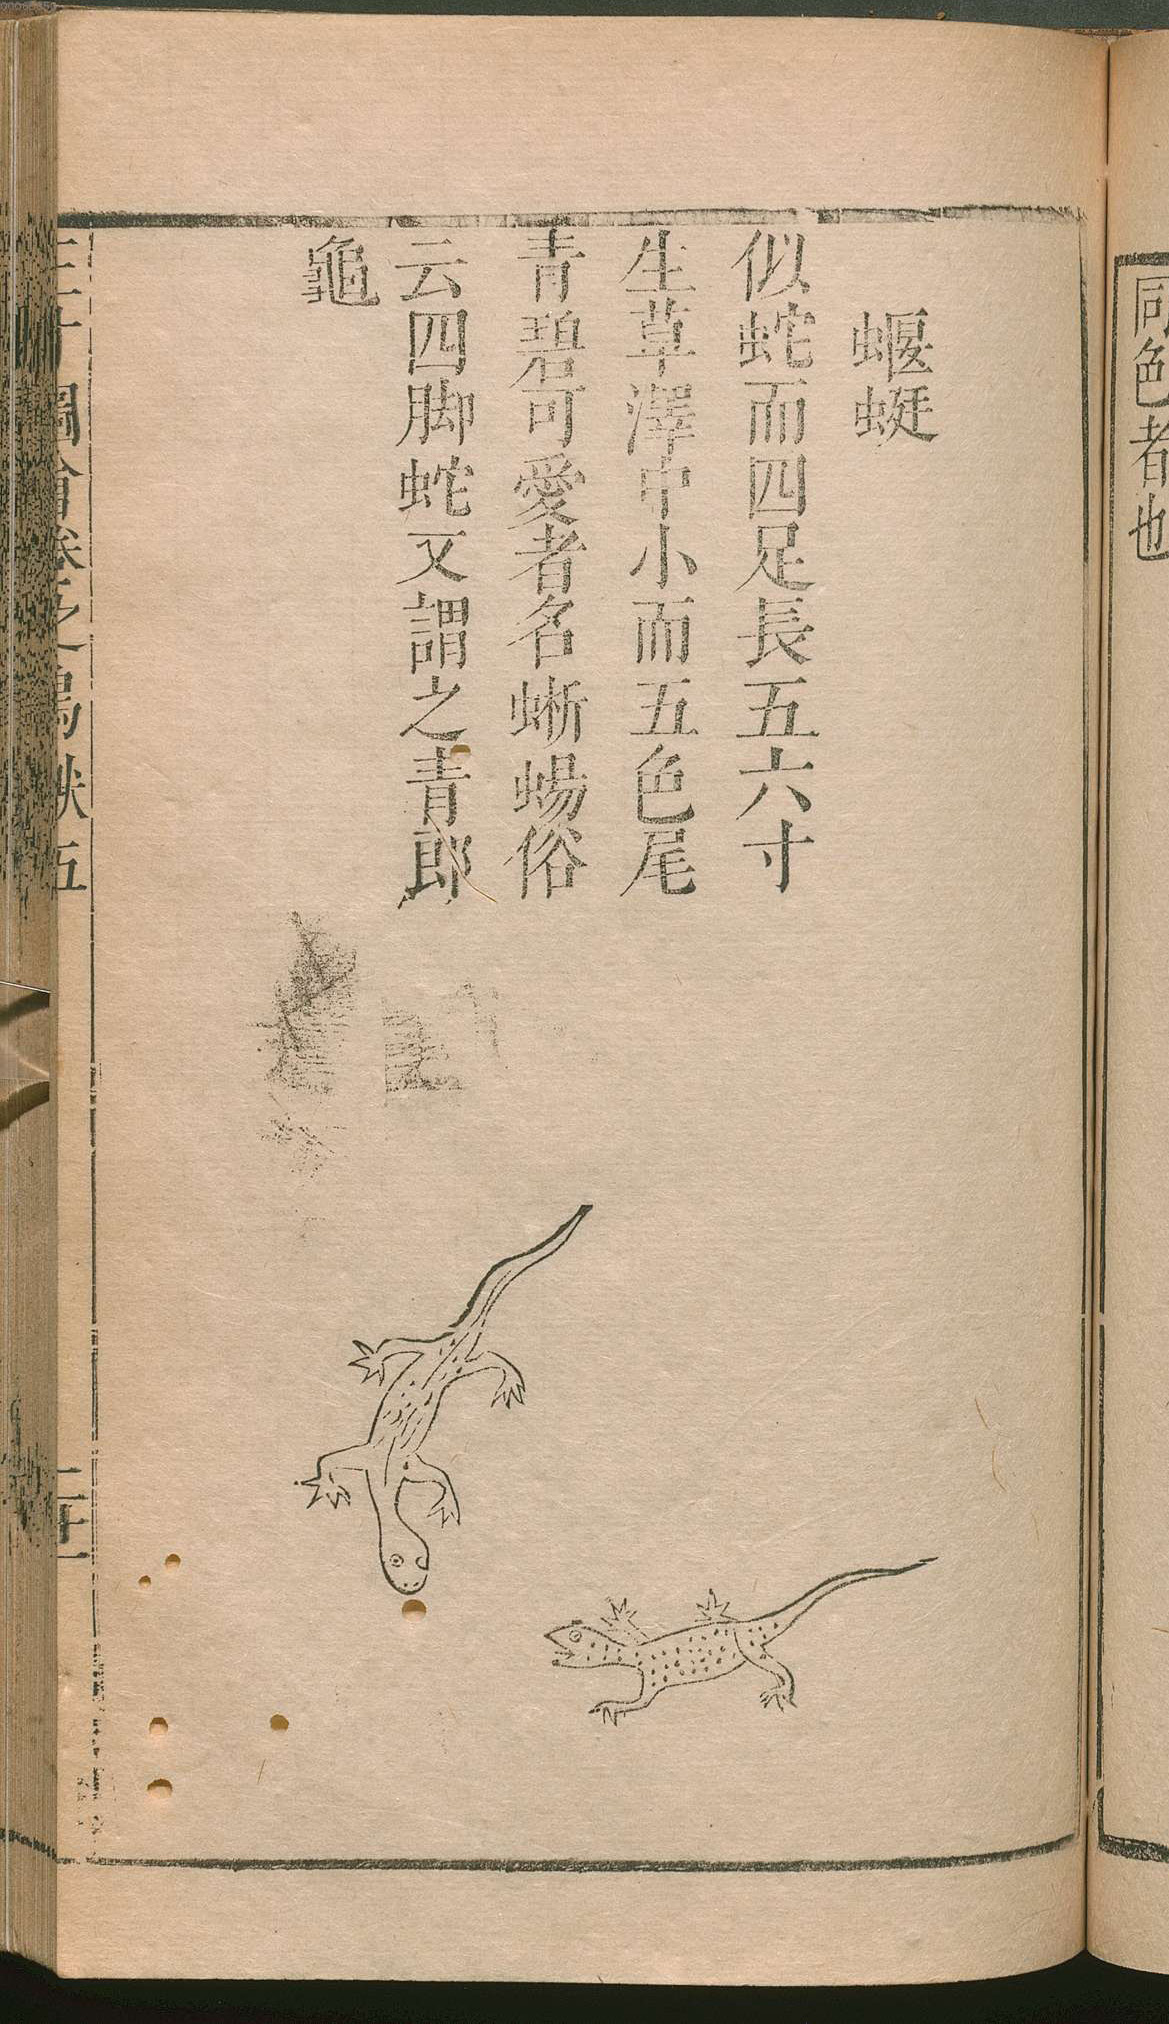 同色者也
蝘蜓
似蛇而四足長五六寸
生草澤中小而五色尾
青碧可愛者名蜥蜴俗
云四脚蛇又謂之青郎
龜
三才圖會卷之鳥獸五
二十一